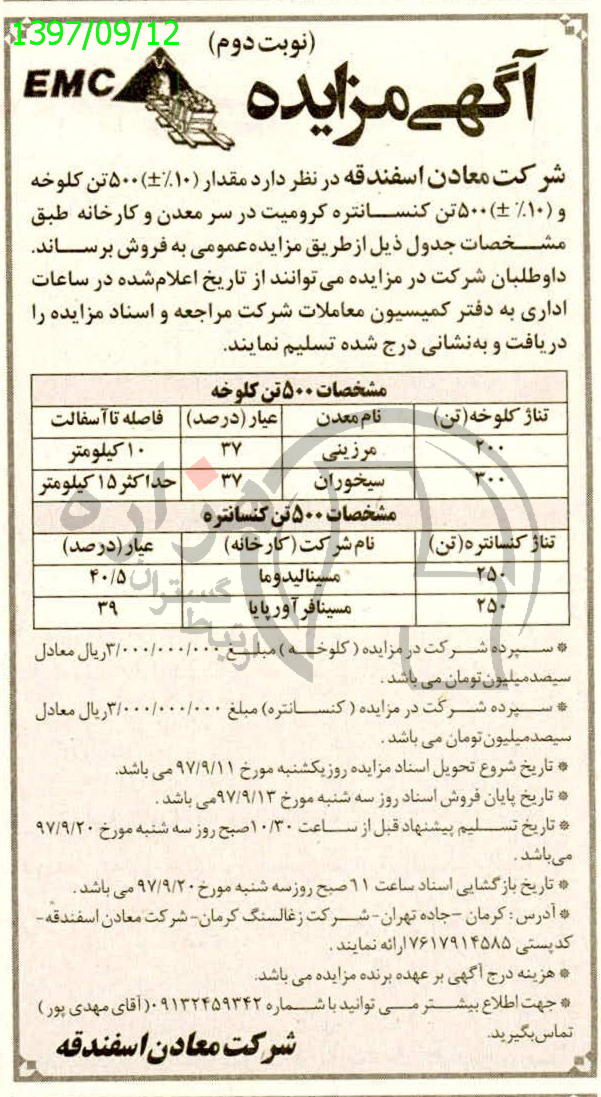 1397/09/12
(نوبت دوم)
EMC
آگهی مزایده
شرکت معادن اسفندقه در نظر دارد مقدار (۱۰٪±)۵۰۰تن کلوخه
و (۱۰٪ ±)۵۰۰تن کنسانتره کرومیت در سر معدن و کارخانه طبق
مشخصات جدول ذیل ازطریق مزایده‌عمومی به فروش برساند.
داوطلبان شرکت در مزایده می‌توانند از تاریخ اعلام‌شده در ساعات
اداری به دفتر کمیسیون معاملات شرکت مراجعه و اسناد مزایده را
دریافت و به‌نشانی درج شده تسلیم نمایند.
مشخصات ۵۰۰تن کلوخه
تناژ کلوخه(تن) نام‌معدن عیار(درصد) فاصله تاآسفالت
۲۰۰ مرزینی ۳۷ ۱۰ کیلومتر
۳۰۰ سیخوران ۳۷ حداکثر۱۵ کیلومتر
مشخصات ۵۰۰تن کنسانتره
تناژ کنسانتره(تن) نام‌شرکت(کارخانه) عیار(درصد)
۲۵۰ مسینالیدوما ۴۰/۵
۲۵۰ مسینافرآورپایا ۳۹
* سپرده شرکت در مزایده ( کلوخه ) مبلغ ۳/۰۰۰/۰۰۰/۰۰۰ریال معادل
سیصدمیلیون‌تومان می باشد .
* سپرده شرکت در مزایده ( کنسانتره) مبلغ ۳/۰۰۰/۰۰۰/۰۰۰ریال معادل
سیصدمیلیون‌تومان می باشد .
* تاریخ شروع تحویل اسناد مزایده روزیکشنبه مورخ ۹۷/۹/۱۱ می باشد.
* تاریخ پایان فروش اسناد روز سه شنبه مورخ ۹۷/۹/۱۳می باشد .
* تاریخ تسلیم پیشنهاد قبل از ساعت ۱۰/۳۰صبح روز سه شنبه مورخ ۹۷/۹/۲۰
می‌باشد .
* تاریخ بازگشایی اسناد ساعت ۱۱صبح روزسه شنبه مورخ۹۷/۹/۲۰ می باشد .
* آدرس : کرمان –جاده تهران- شرکت زغالسنگ کرمان- شرکت معادن اسفندقه-
کدپستی ۷۶۱۷۹۱۴۵۸۵ارائه نمایند .
* هزینه درج آگهی بر عهده برنده مزایده می باشد.
* جهت اطلاع بیشتر می توانید با شماره ۰۹۱۳۲۴۵۹۳۴۲( آقای مهدی پور )
تماس‌بگیرید.
شرکت معادن اسفندقه
هزاره
گستران
ارتباط